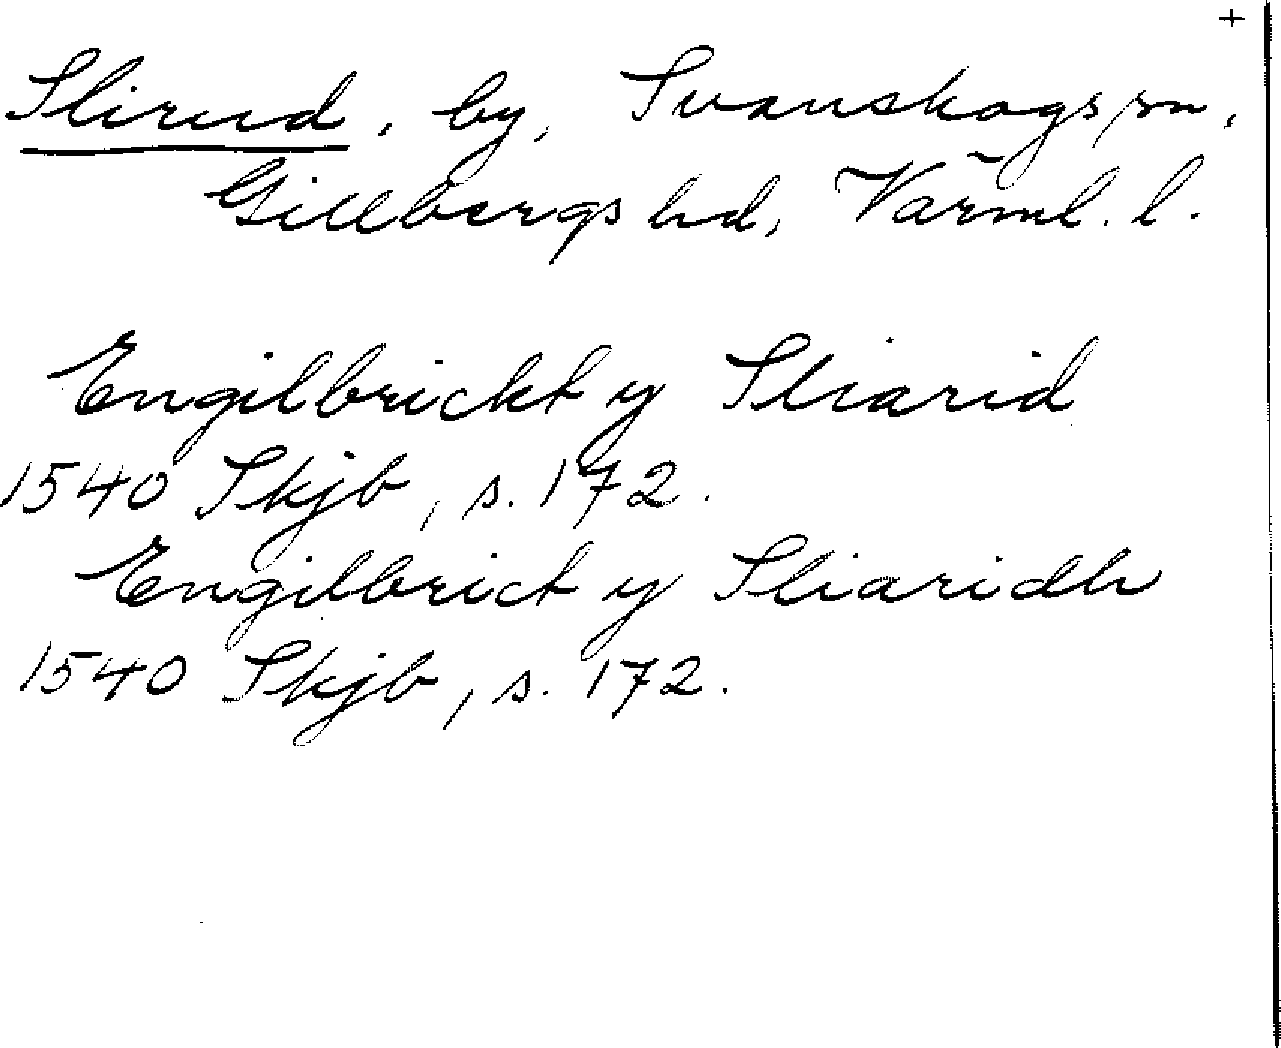 +
Slirud, by, Svanskogs sn,
Gillbergs hd, Värml. l.
Engilbrickt y Sliarid
1540 Skjb, s. 172.
Engilbrict y Sliaridh
1540 Skjb, s. 172.